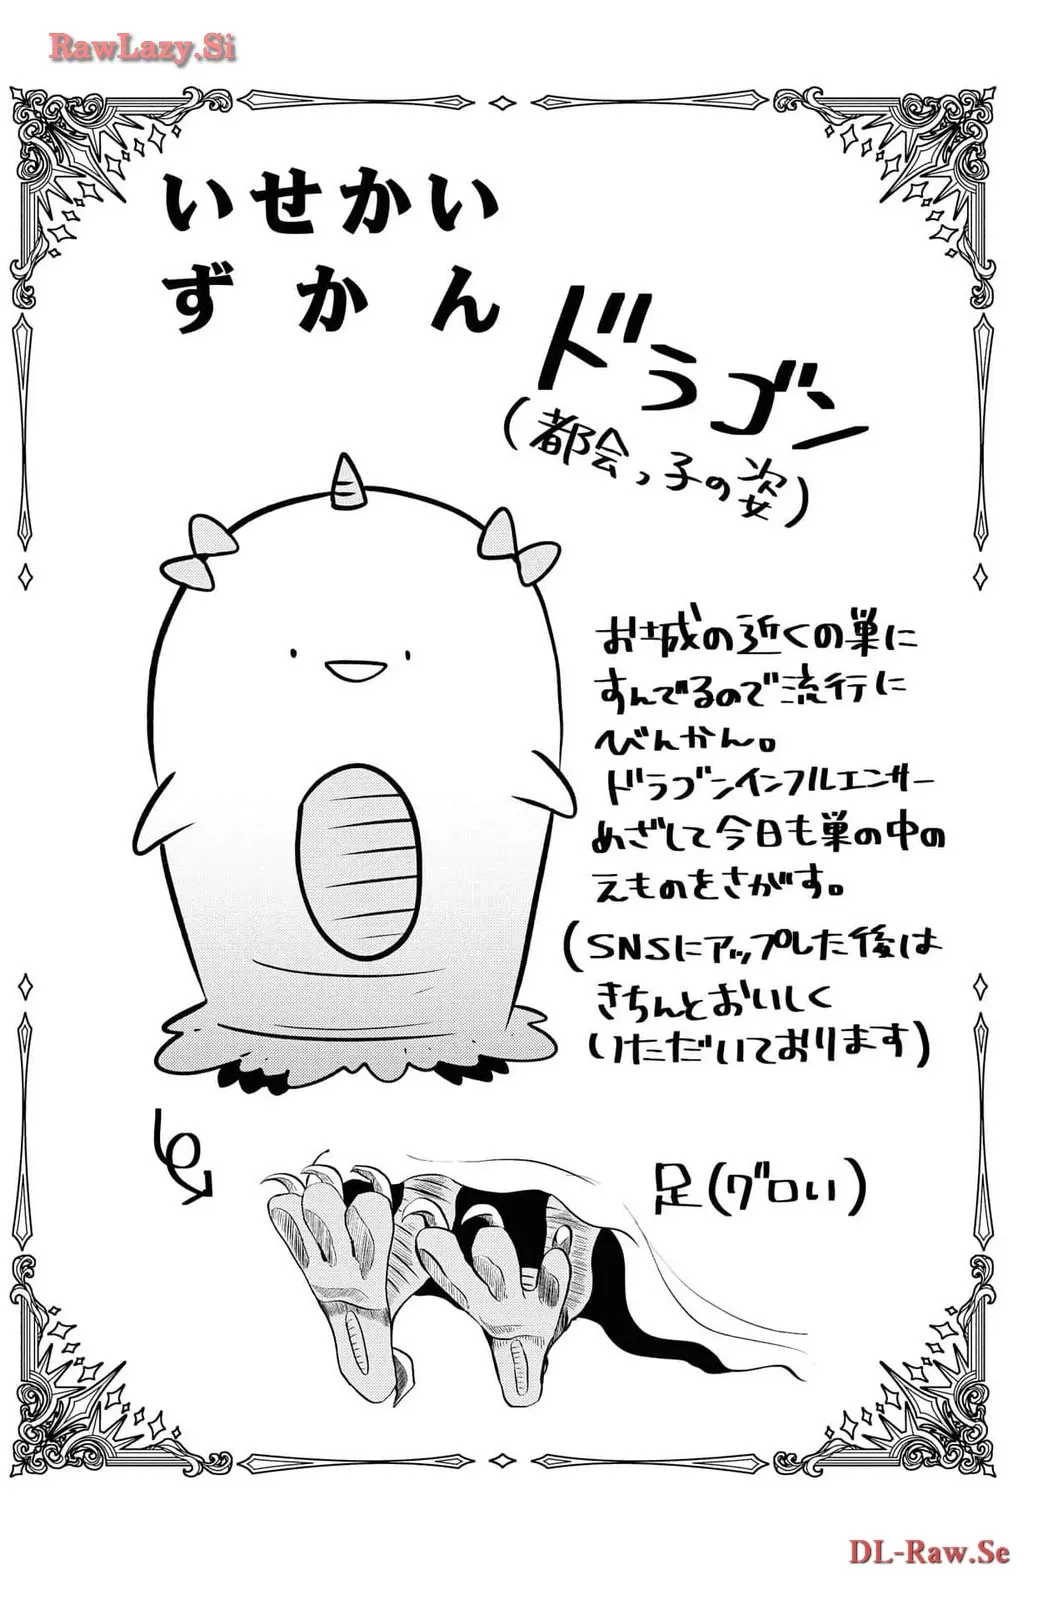 RawLazy.Si
いせかい
ずかん
ドラゴン
(都会っ子の姿)
お城の近くの巣に
すんでるので流行に
びんかん。
ドラゴンインフルエンサー
めざして今日も巣の中の
えものをさがす。
(SNSにアップした後は
きちんとおいしく
いただいております)
足(グロい)
DL-Raw.Se